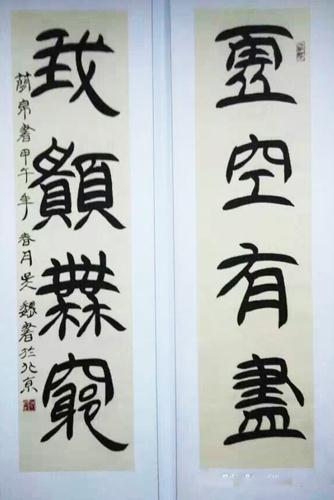 虛空有盡
我願無窮
簡帛書甲午年春月書於北京